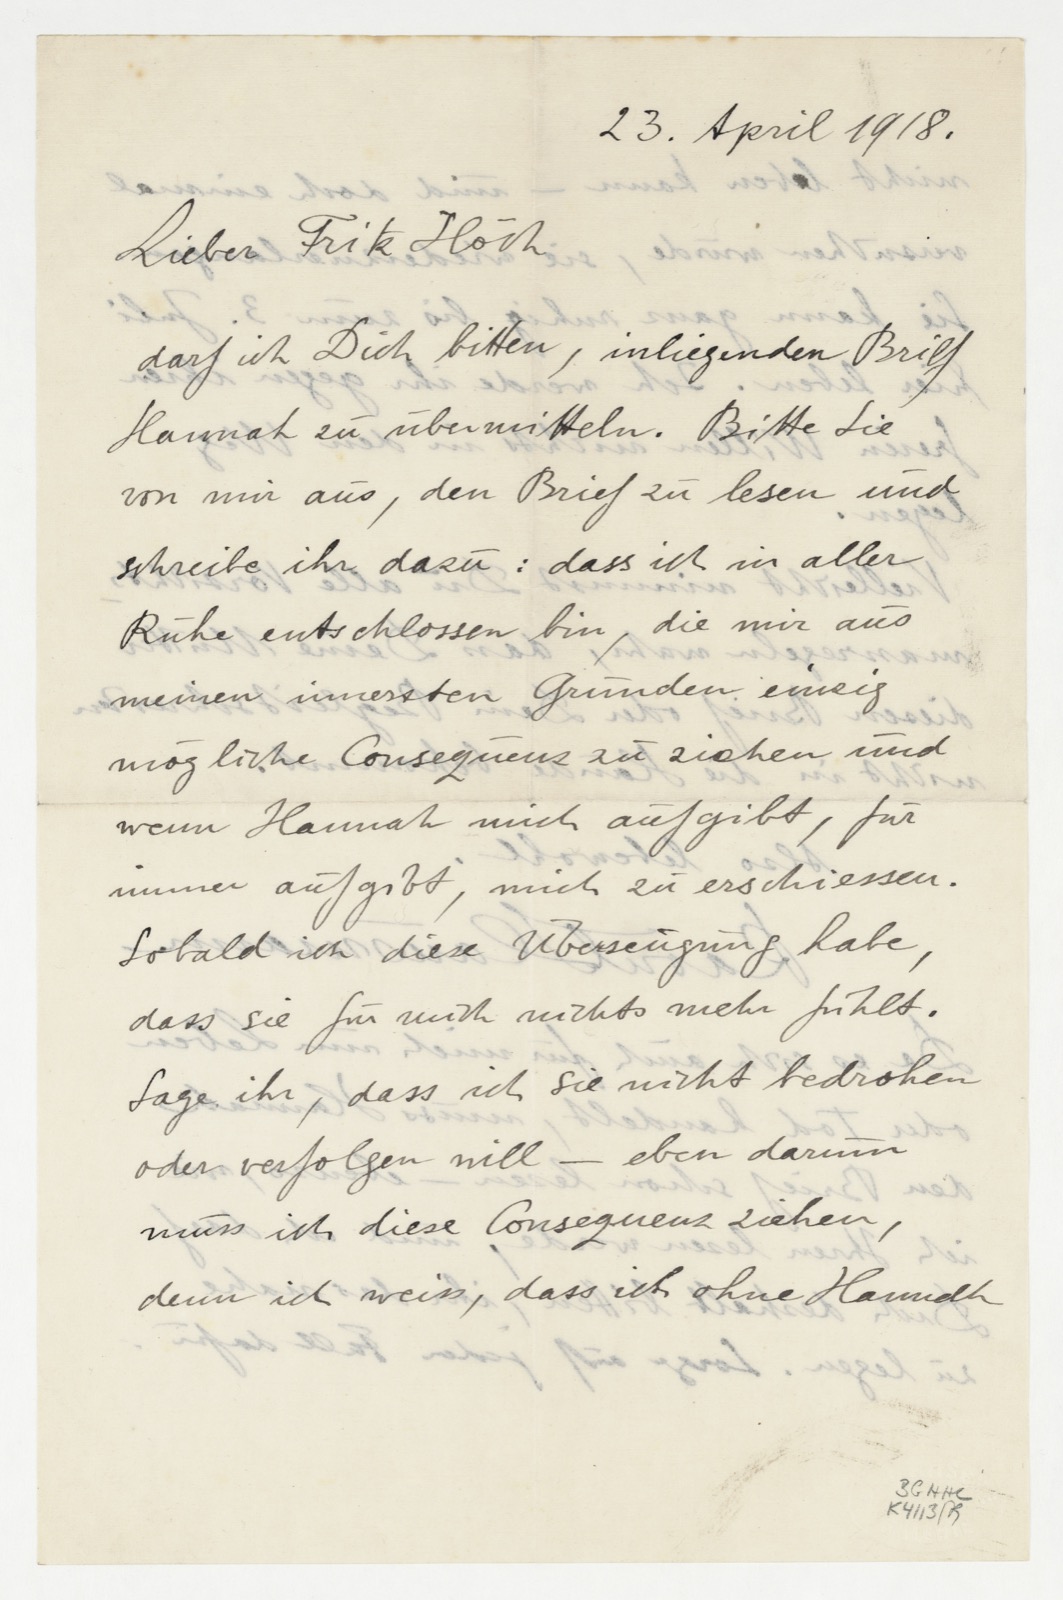 23. April 1918.
Lieber Fritz Höch
darf ich Dich bitten, inliegenden Brief
Hannah zu übermitteln. Bitte Sie
von mir aus, den Brief zu lesen und
schreibe ihr dazu: dass ich in aller
Ruhe entschlossen bin, die mir aus
meinen innersten Gründen einzig
mögliche Consequenz zu ziehen und
wenn Hannah mich aufgibt, für
immer aufgibt, mich zu erschiessen.
Sobald ich diese Überzeugung habe,
dass sie für mich nichts mehr fühlt.
Sage ihr, dass ich sie nicht bedrohen
oder verfolgen will — eben darum
muss ich diese Consequenz ziehen,
denn ich weiss, dass ich ohne Hannah
BG HHC
K 4113/79